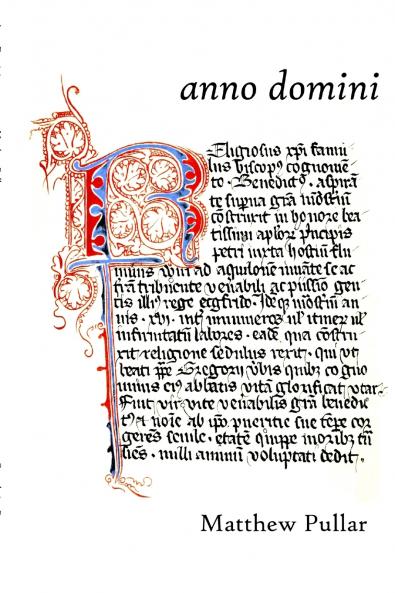 anno domini
Religiosus xpi famu
lus biscopus cognomē
to · Benedictꝰ · aspirā
te supna grā mōstiū
cōstruxit in honore bea
tissimi aplor pncipis
petri iuxta hostiū flu
minis wiri ad aquilonē iuuāte se ac
trā tribuente venabili ac piissimo gen
tis illiꝰ rege ecgfrido · Idēqꝫ mōstiū an
nis · xvi · int innumeros ul' itinerū ul'
infirmitatū labores · eadē qua cōstru
xit religione sedulus rexit · qui vt
beati ppe Gregorij vbis quibꝫ cogno
minis eiꝰ abbatis vitā glorificat vtar
Fuit vir vite venabilis grā benedic
tꝰ et noīe ab ipō puericie sue tēpe cor
gerēs senile · etatē quippe moribꝫ
 · nulli animū voluptati dedit ·
Matthew Pullar